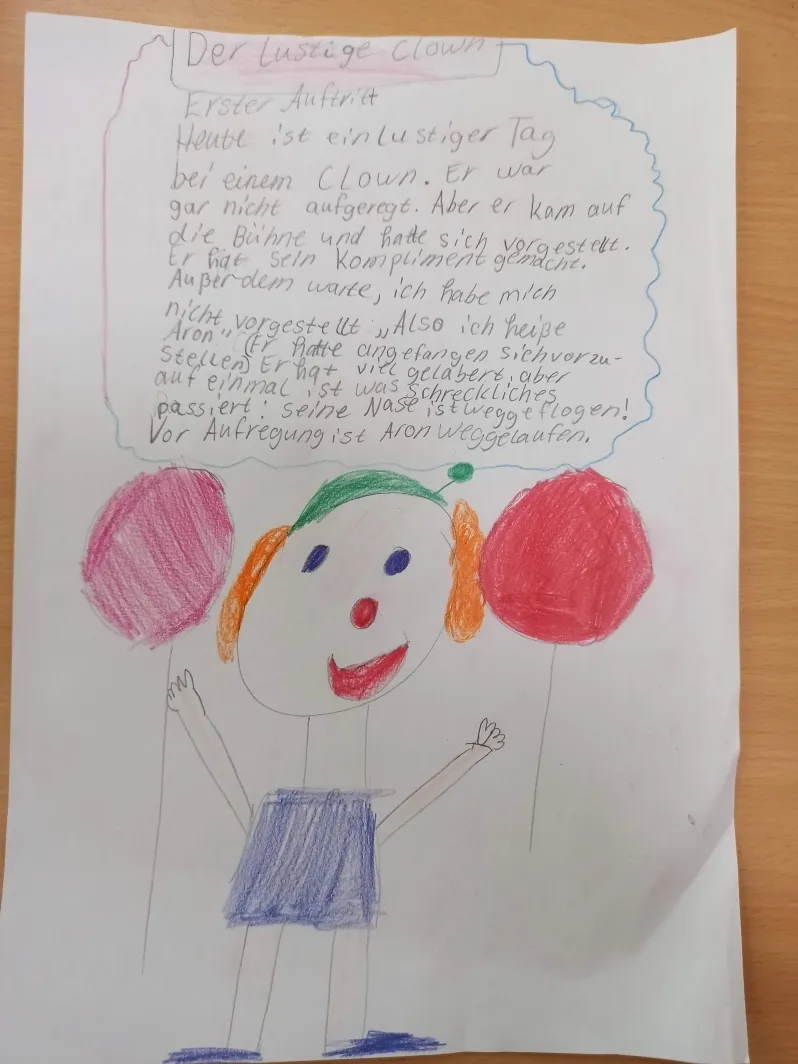 Der Lustige Clown
Erster Auftritt
Heute ist ein lustiger Tag
bei einem Clown. Er war
gar nicht aufgeregt. Aber er kam auf
die Bühne und hatte sich vorgestellt.
Er hat sein Kompliment gemacht.
Außerdem warte, ich habe mich
nicht vorgestellt „Also ich heiße
Aron" (Er hatte angefangen sich vorzu-
stellen) Er hat viel gelabert, aber
auf einmal ist was Schreckliches
passiert: seine Nase ist weggeflogen!
Vor Aufregung ist Aron weggelaufen.